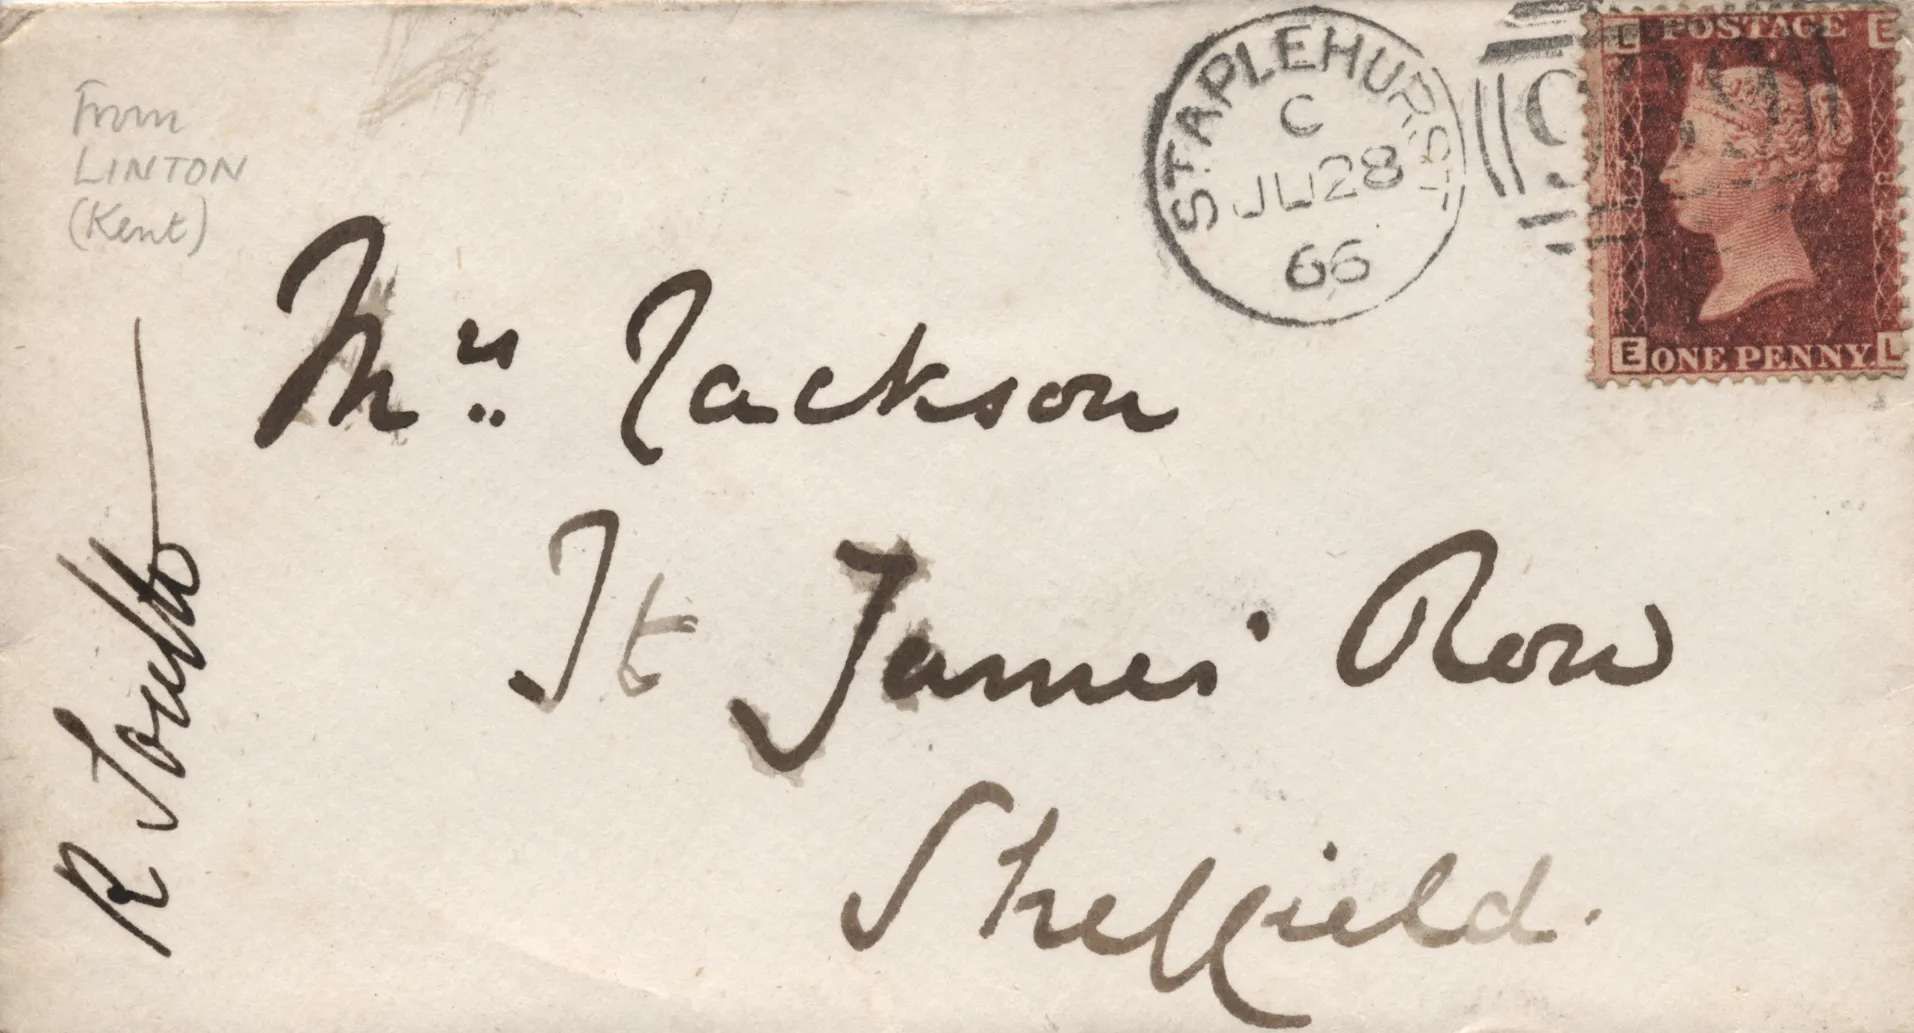 From
LINTON
(Kent)
STAPLEHURST
C
JU 28
66
L POSTAGE E
E ONE PENNY L
Mrs Jackson
St James' Row
Sheffield.
R